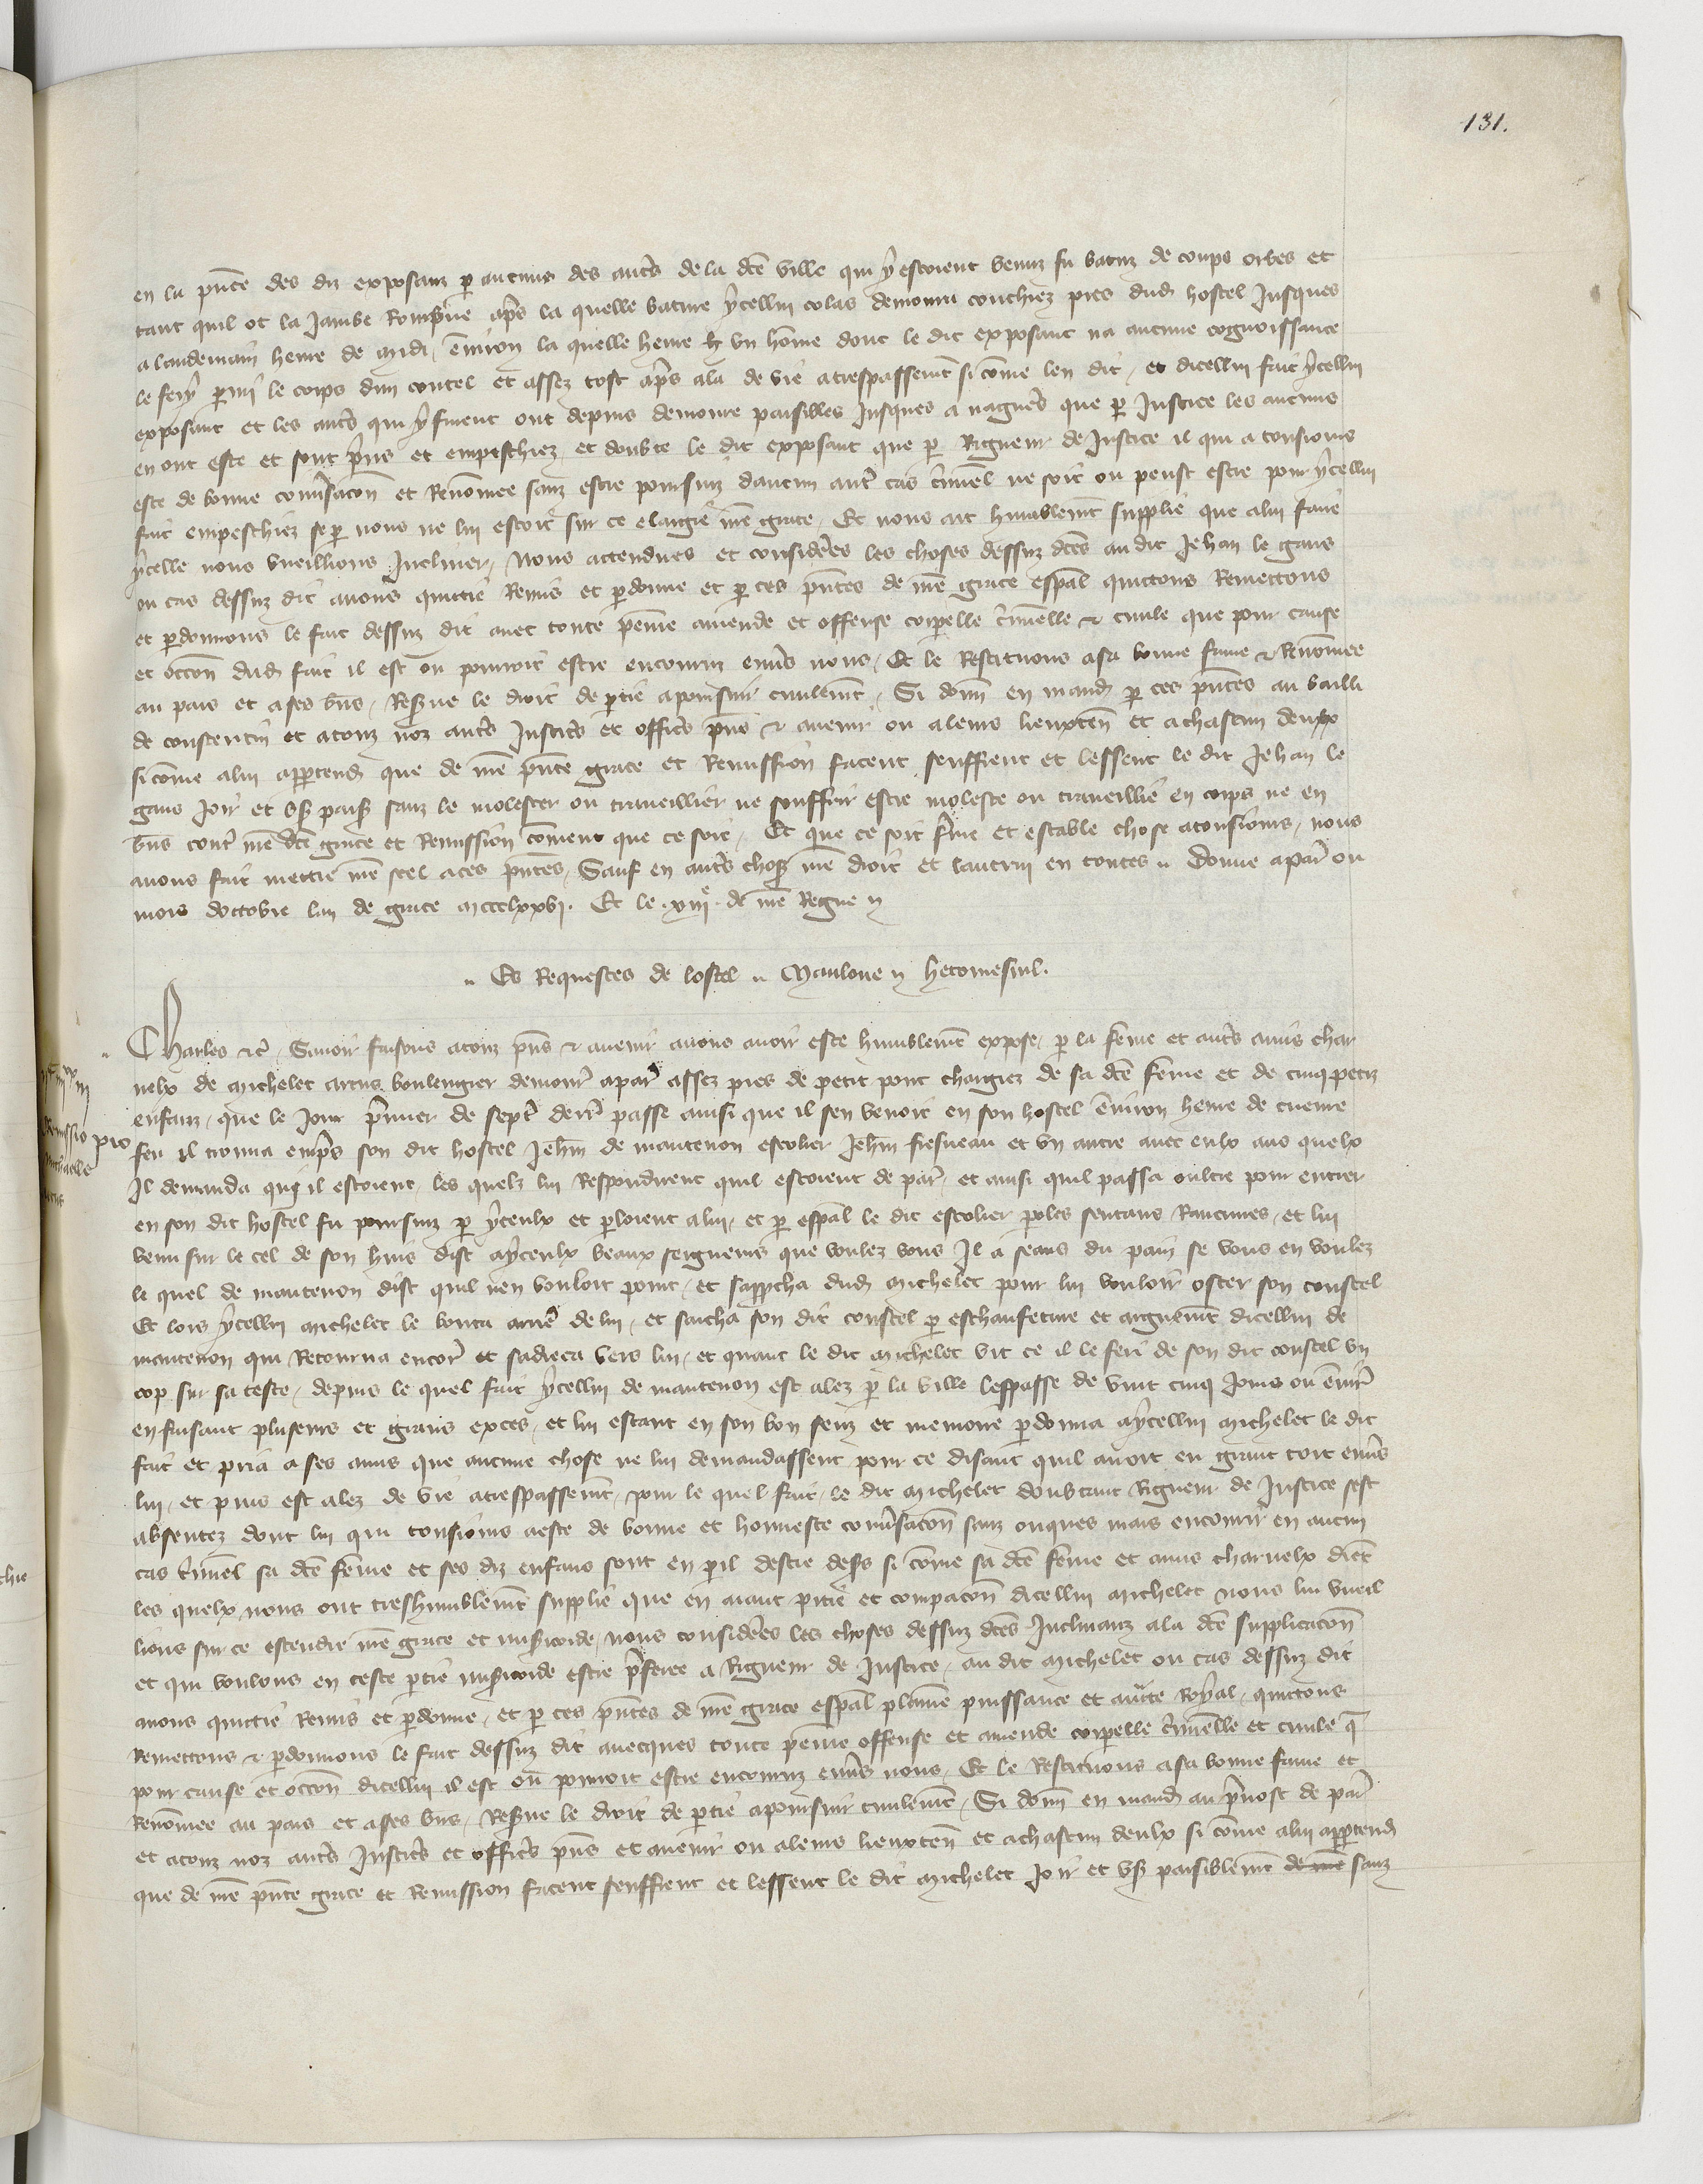 131.
en la pñce des diz exposanz p aucuns des autˢ de la dcẽ ville qui y estoient venuz fu batuz de coups orbes et
tant quil ot la jambe Rompue apˢ la quelle bature ycellui colas demoura couchiez pres dudͥ hostel jusques
a lendemain heure de midi, ẽnuiron la quelle heure un hõme dont le dit exposant na aucune cognoissance
le fery parmi le corps dun coutel et assez tost apˢ ala de vie a trespassemẽt si cõme len dit, et dicellui fait ycellui
exposant et les autˢ qui y furent ont depuis demoure paisibles jusques a naguerˢ que p justice les aucuns
en ont este et sont pˢins et empeschiez, et doubte le dit exposant que p Rigueur de justice il qui a tousiours
este de bonne conuˢsacõn et Renõmee sanz estre poursuiz daucun autˢ cas cˢiminel ne soit ou peust estre pour ycellui
fait empeschiez se p nous ne lui estoit sur ce elargie nrẽ grace, Et nous ait humblemẽt supplie que a lui faire
ycelle nous vueillions jncliner, Nous attendues et considerees les choses dessuz dcẽs au dit Jehan le gaus
ou cas dessuz dit auons quictie Remis et pdonne et p ces pñtes de nrẽ grace espãl quictons Remettons
et pdonnons le fait dessuz dit auec toute peine amende et offense corpelle cˢiminelle & ciuile que pour cause
et occõn dudͥ fait il est ou pourroit estre encouru enuˢs nous, Et le Restituons a sa bonne fame & Renõmee
au pais et a ses bñs, Reseˢue le droit de ptie a poursuir ciuilemẽt, Si donñ en mandͥ p ces pñtes au bailli
de constentin et a touz noz autˢ justicˢs et officˢs pñs & auenir ou a leurs lieuxteñ et a chascun deulx
si cõme a lui apptendͥ que de nrẽ pñte grace et Remission facent seuffrent et lessent le dit Jehan le
gaus joir et vsˢ paisˢ sanz le molester ou traueillier ne souffrir estre moleste ou traueillie en corps ne en
bñs contˢ nrẽ dcẽ grace et Remission cõment que ce soit, Et que ce soit fˢme et estable chose a tousiours, nous
auons fait mettre nrẽ scel a ces pñtes, Sauf en autˢs chosˢ nrẽ droit et lautrui en toutes. Donne a parˢ ou
mois doctobre lan de grace mccclxxvj. Et le .xiij.ᵉ de nrẽ Regne
Es Requestes de lostel. Mauloue. hetomesnil.
Charles &c̃, Sauoir faisons a touz pñs & auenir a nous auoir este humblemẽt expose, p la fẽme et autˢs amis char
nelx de Michelet boulengier demourˢ a parˢ assez pres de petit pont chargiez de sa dcẽ fẽme et de cinq petiz
enfanz, que le jour pˢmier de septˢ derrˢ passe ainsi que il sen venoit en son hostel ẽnuiron heure de cueure
feu il trouua empˢs son dit hostel Jehñ de mantenon escolier Jehñ fresneau et vn autre auec eulx aus quelx
Il demanda qui il estoient, les quelz lui Respondirent quil estoient de parˢ, et ainsi quil passa oultre pour entrer
en son dit hostel fu poursuiz p yceulx et ploient a lui, et p espãl le dit escolier poles sentans Rancunes, et lui
venu sur le cel de son huis dist a yceulx beaux seigneurs que voulez vous Il a seans du pain se vous en voulez
le quel de mantenon dist quil nen vouloit point, et sappcha dudͥ Michelet pour lui vouloir oster son coustel
Et lors ycellui Michelet le bouta arrierˢ de lui, et sacha son dit coustel p eschaufeture et arguemẽt dicellui de
mantenon qui Retourna encorˢ et sadreca vers lui, et quant le dit Michelet vit ce il le feri de son dit coustel vn
cop sur sa teste, depuis le quel fait ycellui de mantenon est alez p la ville lespasse de vint cinq jours ou ẽnuirˢ
en faisant pluseurs et grans exces, et lui estant en son bon senz et memoire pdonna a ycellui Michelet le dit
fait et pria a ses amis que aucune chose ne lui demandassent pour ce disant quil auoit eu grant tort enuˢs
lui, et puis est alez de vie a trespassemẽt, pour le quel fait, le dit Michelet doubtant Rigueur de justice sest
absentez dont lui qui tousiours a este de bonne et honneste conuˢsacõn sanz onques mais encourir en aucun
cas cˢiminel sa dcẽ fẽme et ses diz enfans sont en pˢil destre desˢs si cõme sa dcẽ fẽme et amis charnelx dient
les quelx nous ont treshumblemẽt supplie que en aiant pitie et compacõn dicellui Michelet nous lui vueil
lions sur ce estendre nrẽ grace et misˢicorde, nous considerees les choses dessuz dcẽs Jnclinanz a la dcẽ supplicacõn
et qui voulons en ceste ptie misˢicorde estre pˢferee a Rigueur de justice, au dit Michelet ou cas dessuz dit
auons quictie Remis et pdonne, et p ces pñtes de nrẽ grace espãl plaine puissance et aucte Royal, quictons
Remettons & pdonnons le fait dessuz dit auecques toute peine offense et amende corpelle cˢiminelle et ciuile q̃
pour cause et occõn dicellui il est ou pourroit estre encouruz enuˢs nous, Et le Restituons a sa bonne fame et
Renõmee au pais et a ses bñs, Reseˢue le droit de ptie a poursuir ciuilemẽt, Si donñ en mandͥ au pˢuost de parˢ
et a touz noz autˢs justicˢs et officˢs pñs et auenir ou a leurs lieuxteñ et a chascun deulx si cõme a lui apptendͥ
que de nrẽ pñte grace et Remission facent seuffrent et lessent le dit Michelet joir et vsˢ paisiblemẽt de nrẽ sanz
Remissio pro